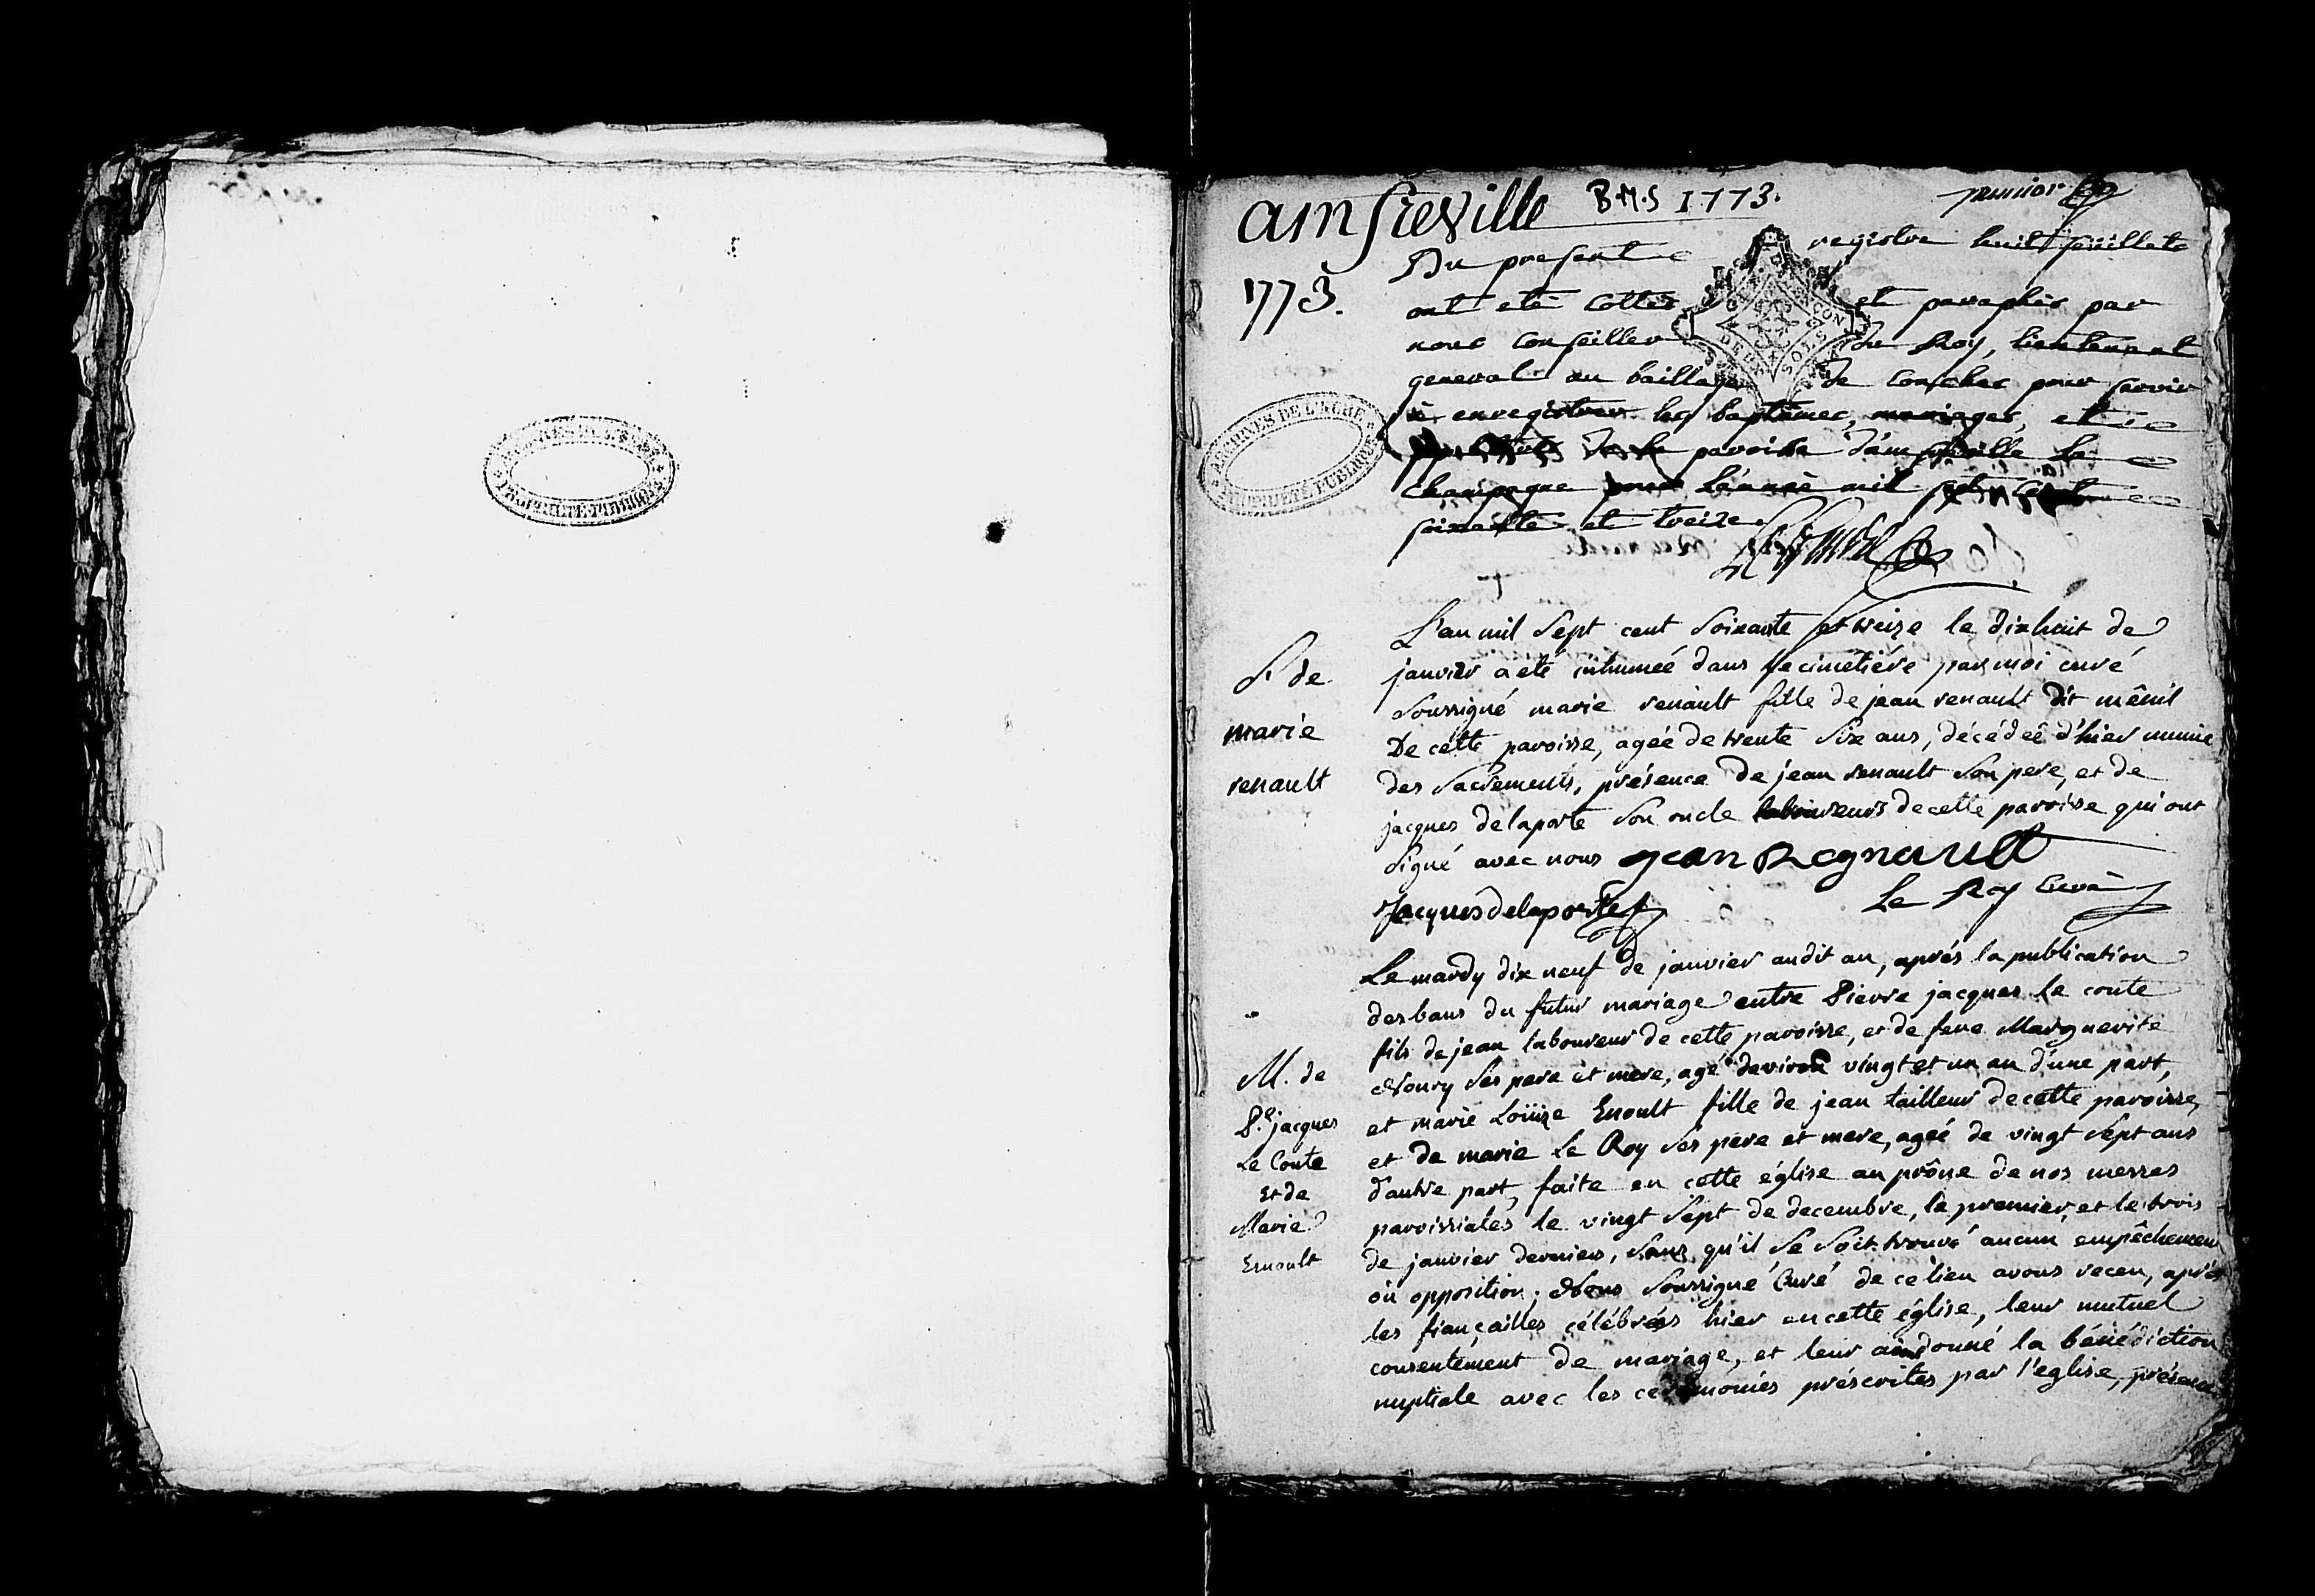 amfreville B.M.S 1773. premier
1773.
Du present registre huit feuillets
ont eté cottés et paraphés par
nous conseiller du Roy, lieutenant
general au bailliage de conches pour servir
à enregistrer les baptêmes, mariages, et
de la paroisse d'amfreville la
champagne pour l'année mil sept cent
soixante et treize
ARCHIVES DE L'EURE
PROPRIETE PUBLIQUE
ARCHIVES DE L'EURE
PROPRIETE PUBLIQUE
S. de
marie
renault
L'an mil sept cent soixante et treize le dixhuit de
janvier a eté inhumeé dans le cimetiére par moi curé
soussigné marie renault fille de jean renault dit mênil
De cette paroisse, ageé de trente six ans, décédeé d'hier munie
des sacrements, présence de jean renault son pere, et de
jacques delaporte son oncle laboureurs de cette paroisse qui ont
signé avec nous jean Regnault
Jacques delaporte Le Roy Curé
M. de
P.e jacques
Le Conte
et de
Marie
Enoult
Le mardy dix neuf de janvier audit an, aprés la publication
des bans du futur mariage entre Pierre jacques le conte
fils de jean laboureur de cette paroisse, et de feue Marguerite
Noury ses pere et mere, agé deviron vingt et un an d'une part,
et marie Loüise Enoult fille de jean tailleur de cette paroisse,
et de marie Le Roy ses pere et mere, ageé de vingt sept ans
d'autre part, faite en cette église au prône de nos messes
paroissiales le vingt sept de decembre, le premier, et le trois
de janvier derniers, sans qu'il se soit trouvé aucun empêchement
où opposition; Nous soussigné Curé de ce lieu avous receu, aprés
les fiançailles célébrées hier en cette église, leur mutuel
consentement de mariage, et leur donné la bénédiction
nuptiale avec les ceremonies préscrites par l'eglise, présence